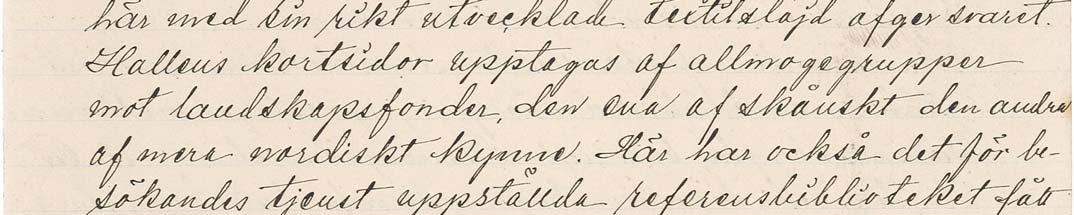 här med sin rikt utvecklade textilslöjd afger svaret.
Hallens kortsidor upptagas af allmogegrupper
mot landskapsfonder, den ena af skånskt den andra
af mera nordiskt kynne. Här har också det för be-
sökandes tjenst uppställda referensbiblioteket fått